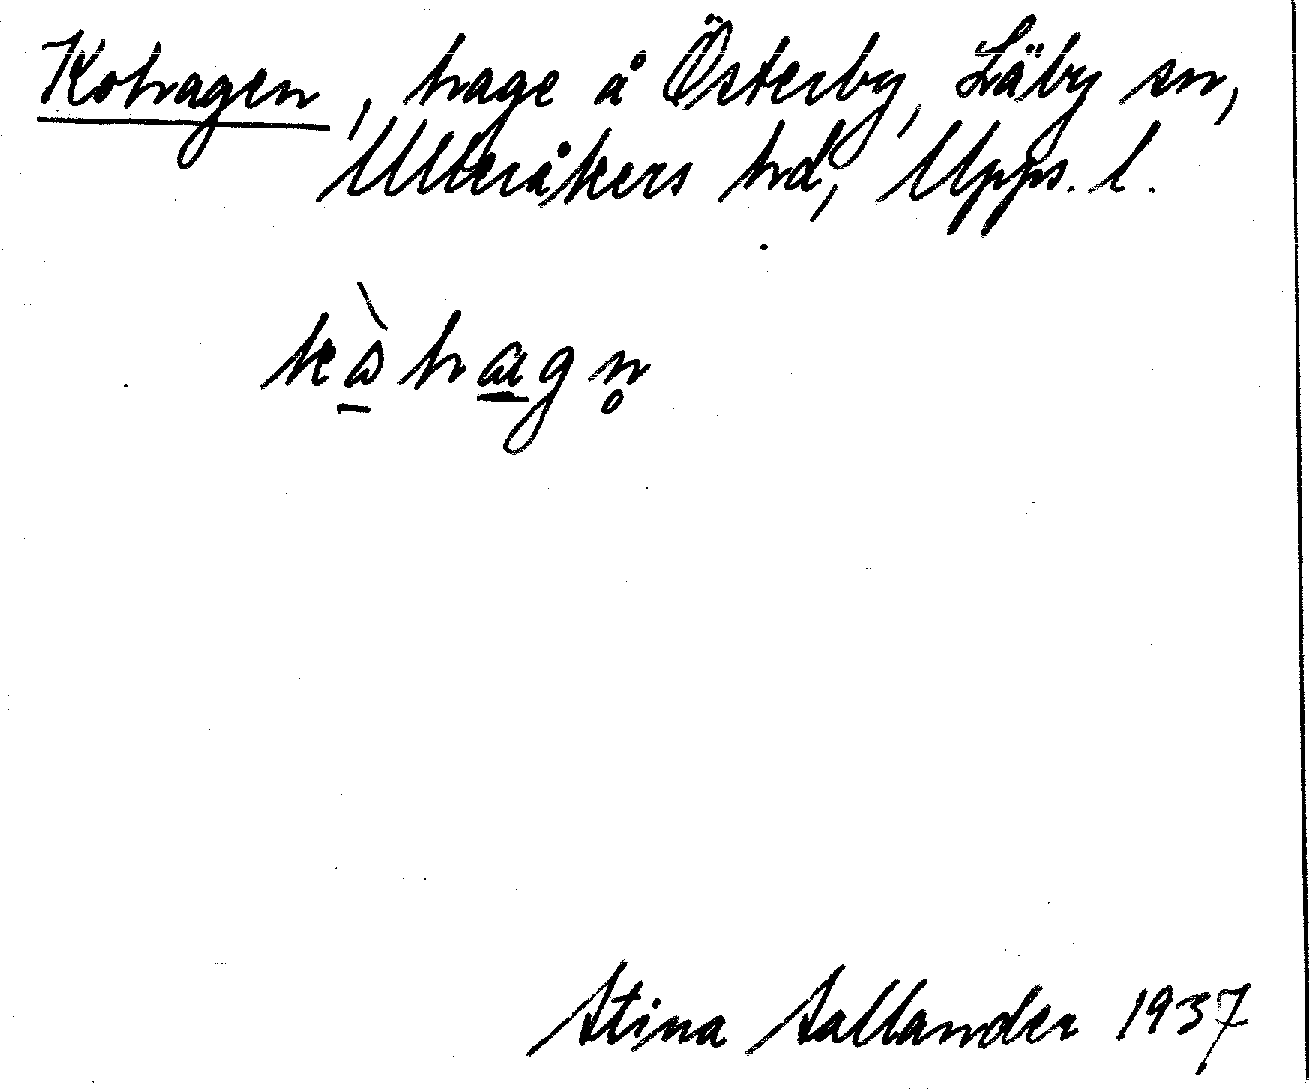 Kohagen, hage å Österby, Läby sn,
Ulleråkers hd, Upps. l.
kò̱ha̱gn̥
Stina Sallander 1937